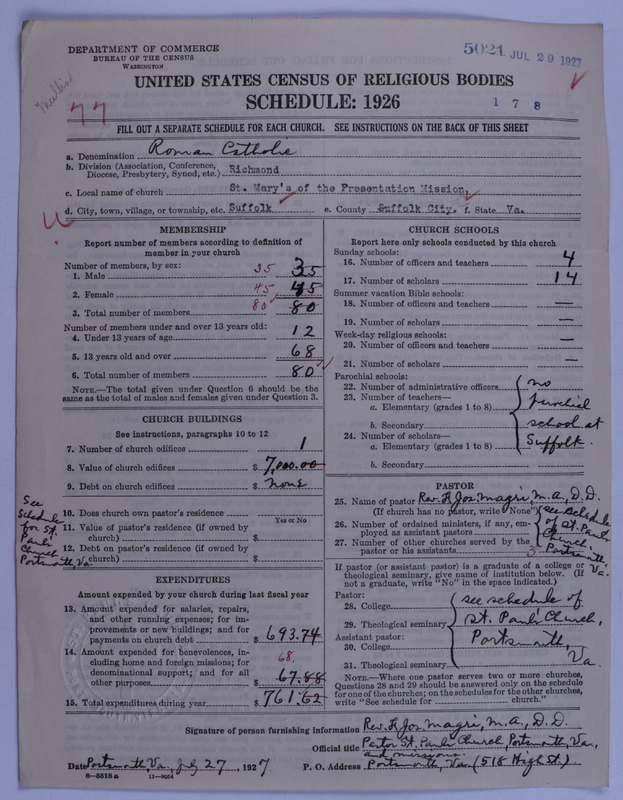 DEPARTMENT OF COMMERCE
BUREAU OF THE CENSUS
WASHINGTON
5021 JUL 29 1927
77
UNITED STATES CENSUS OF RELIGIOUS BODIES
SCHEDULE: 1926
1 7 8
FILL OUT A SEPARATE SCHEDULE FOR EACH CHURCH. SEE INSTRUCTIONS ON THE BACK OF THIS SHEET
a. Denomination Roman Catholic
b. Division (Association, Conference, Diocese, Presbytery, Synod, etc.) Richmond
c. Local name of church St. Mary's of the Presentation Mission,
d. City, town, village, or township, etc. Suffolk e. County Suffolk City, f. State Va.
MEMBERSHIP
Report number of members according to definition of
member in your church
Number of members, by sex:
1. Male 35 35
2. Female 45 45
3. Total number of members 80 80
Number of members under and over 13 years old:
4. Under 13 years of age 12
5. 13 years old and over 68
6. Total number of members 80
NOTE.—The total given under Question 6 should be the
same as the total of males and females given under Question 3.
CHURCH BUILDINGS
See instructions, paragraphs 10 to 12
7. Number of church edifices 1
8. Value of church edifices $ 7,000.00
9. Debt on church edifices $ none
See Schedule for St. Paul's Church Portsmouth, Va.
10. Does church own pastor's residence
Yes or No
11. Value of pastor's residence (if owned by
church) $
12. Debt on pastor's residence (if owned by
church) $
EXPENDITURES
Amount expended by your church during last fiscal year
13. Amount expended for salaries, repairs,
and other running expenses; for im-
provements or new buildings; and for
payments on church debt $ 693.74
14. Amount expended for benevolences, in-
cluding home and foreign missions; for
denominational support; and for all
other purposes $ 67.88
68.
15. Total expenditures during year $ 761.62
CHURCH SCHOOLS
Report here only schools conducted by this church
Sunday schools:
16. Number of officers and teachers 4
17. Number of scholars 14
Summer vacation Bible schools:
18. Number of officers and teachers —
19. Number of scholars —
Week-day religious schools:
20. Number of officers and teachers —
21. Number of scholars —
Parochial schools:
22. Number of administrative officers
23. Number of teachers—
a. Elementary (grades 1 to 8)
b. Secondary
24. Number of scholars—
a. Elementary (grades 1 to 8)
b. Secondary
no parochial school at Suffolk.
PASTOR
25. Name of pastor Rev. F. Jos. Magri, M.A., D.D.
(If church has no pastor, write "None")
26. Number of ordained ministers, if any, em-
ployed as assistant pastors
27. Number of other churches served by the
pastor or his assistants 3
see schedule of St. Paul's Church Portsmouth, Va.
If pastor (or assistant pastor) is a graduate of a college or
theological seminary, give name of institution below. (If
not a graduate, write "No" in the space indicated.)
Pastor:
28. College
29. Theological seminary
Assistant pastor:
30. College
31. Theological seminary
see schedule of St. Paul's Church, Portsmouth, Va.
NOTE.—Where one pastor serves two or more churches,
Questions 28 and 29 should be answered only on the schedule
for one of the churches; on the schedules for the other churches,
write "See schedule for church."
Signature of person furnishing information Rev. F. Jos. Magri, M.A., D.D.
Official title Pastor St. Paul's Church, Portsmouth, Va.,
and missions.
Date Portsmouth, Va., July 27, 1927 P. O. Address Portsmouth, Va. (518 High St.)
8—5518 a 11—9054